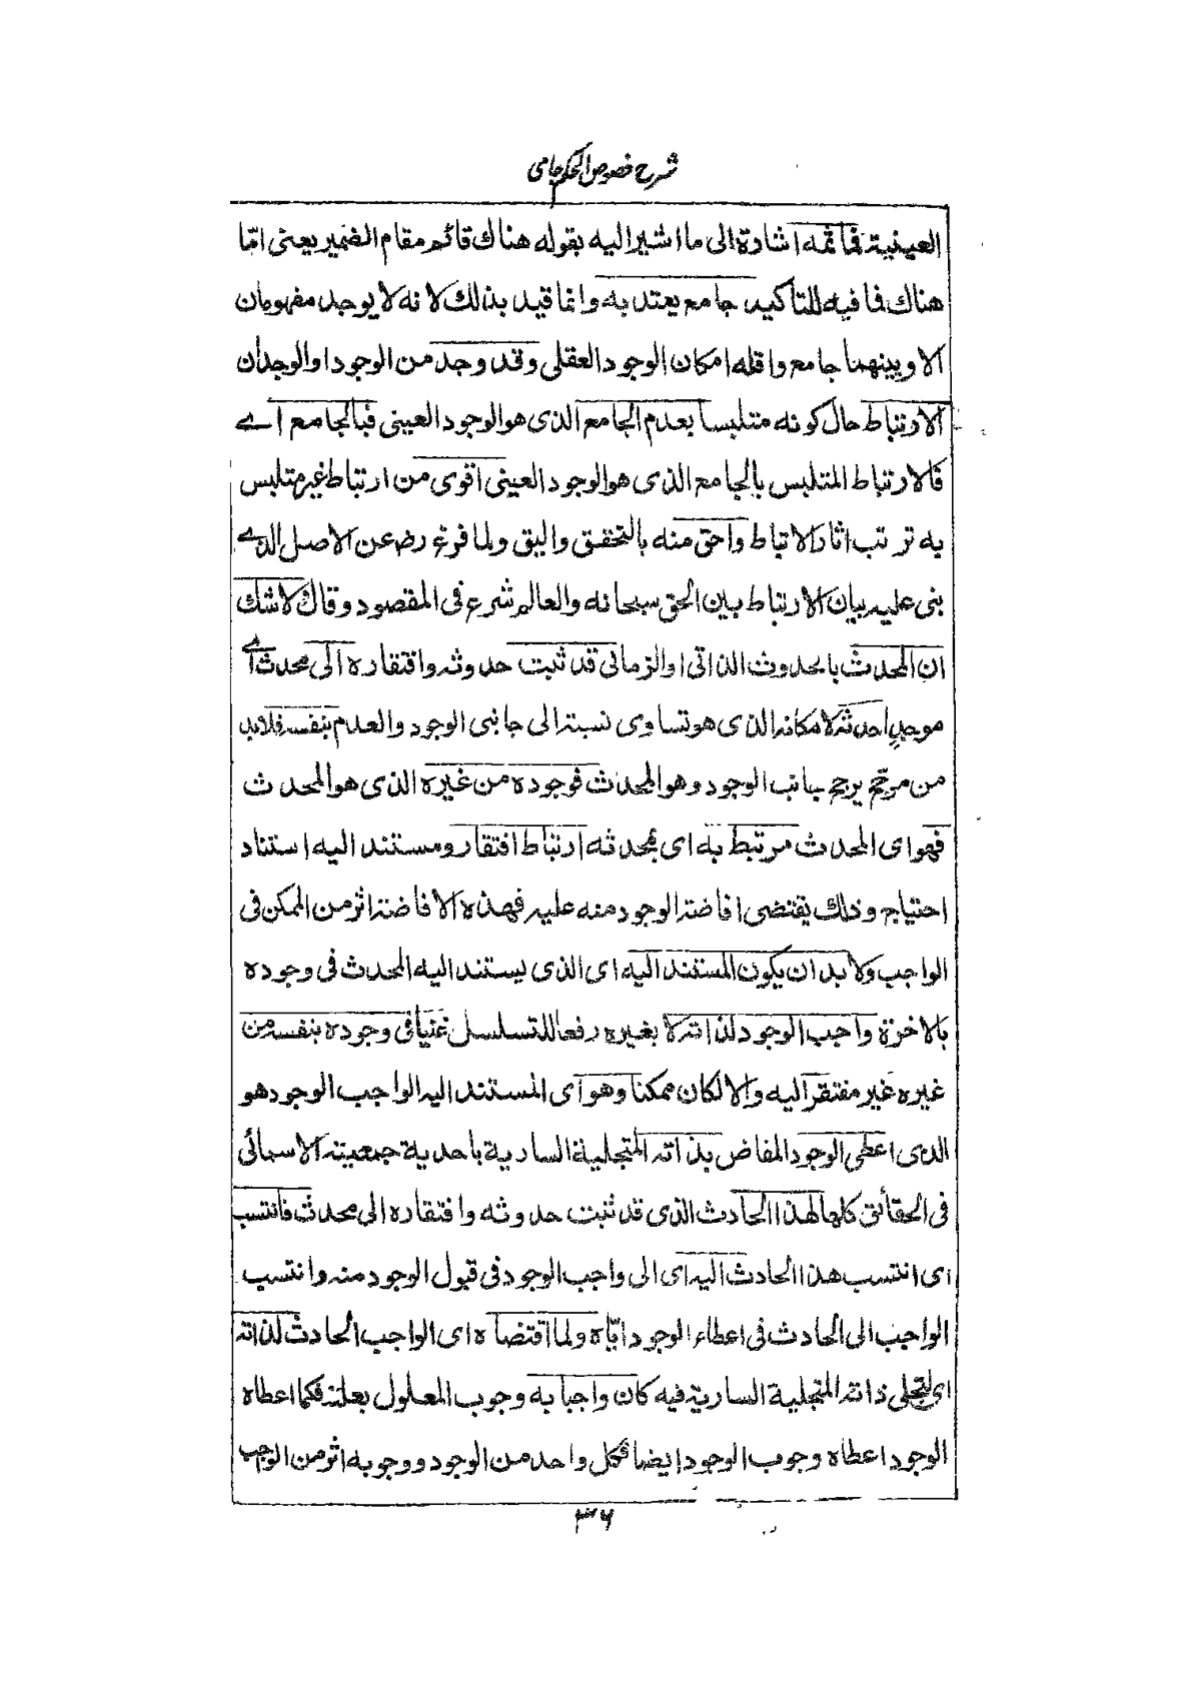 شرح فصوص الحکم جامی
العينية فما ثمه اشارة الى ما اشير اليه بقوله هناك قائم مقام الضمير يعنى امّا
هناك فما فيه للتاكيد جامع يعتد به وانما قيد بذلك لانه لا يوجد مفهومان
الا وبينهما جامع واقله امكان الوجود العقلى وقد وجد من الوجود او الوجدان
الارتباط حال كونه متلبسا بعدم الجامع الذى هو الوجود العينى فبالجامع اے
فالارتباط المتلبس بالجامع الذى هو الوجود العينى اقوى من ارتباط غير متلبس
به ترتب اثار الاتباط واحق منه بالتحقق واليق ولما فرغ رض عن الاصل الذے
بنى عليه بيان الارتباط بين الحق سبحانه والعالم شرع فى المقصود وقال لا شك
ان المحدث بالحدوث الذاتى او الزمانى قد ثبت حدوثه وافتقاره الى محدث اے
موجدٍ احدثه لامكانه الذى هو تساوى نسبته الى جانبى الوجود والعدم بنفسه فلابد
من مرجّح يرجح جانب الوجود وهو المحدث فوجوده من غيره الذى هو المحدث
فهو اى المحدث مرتبط به اى بمحدثه ارتباط افتقار ومستند اليه استناد
احتياج وذلك يقتضى افاضة الوجود منه عليه فهذه الافاضة اثر من الممكن فى
الواجب ولا بد ان يكون المستند اليه اى الذى يستند اليه المحدث فى وجوده
بالاخرة واجب الوجود لذاته لا بغيره رفعا للتسلسل غنيا فى وجوده بنفسه من
غيره غير مفتقر اليه والا لكان ممكنا وهو اى المستند اليه الواجب الوجود هو
الذى اعطى الوجود المفاض بذاته المتجلية السارية باحدية جمعيته الاسمائى
فى الحقائق كلها لهذا الحادث الذى قد ثبت حدوثه وافتقاره الى محدث فانتسب
اى انتسب هذا الحادث اليه اى الى واجب الوجود فى قبول الوجود منه وانتسب
الواجب الى الحادث فى اعطاء الوجود ايّاه ولما اقتضاه اى الواجب الحادث لذاته
اى لتجلى ذاته المتجلية السارية فيه كان واجبا به وجوب المعلول بعلته فكما اعطاه
الوجود اعطاه وجوب الوجود ايضا فكل واحد من الوجود ووجوبه اثر من الواجب
۳۶